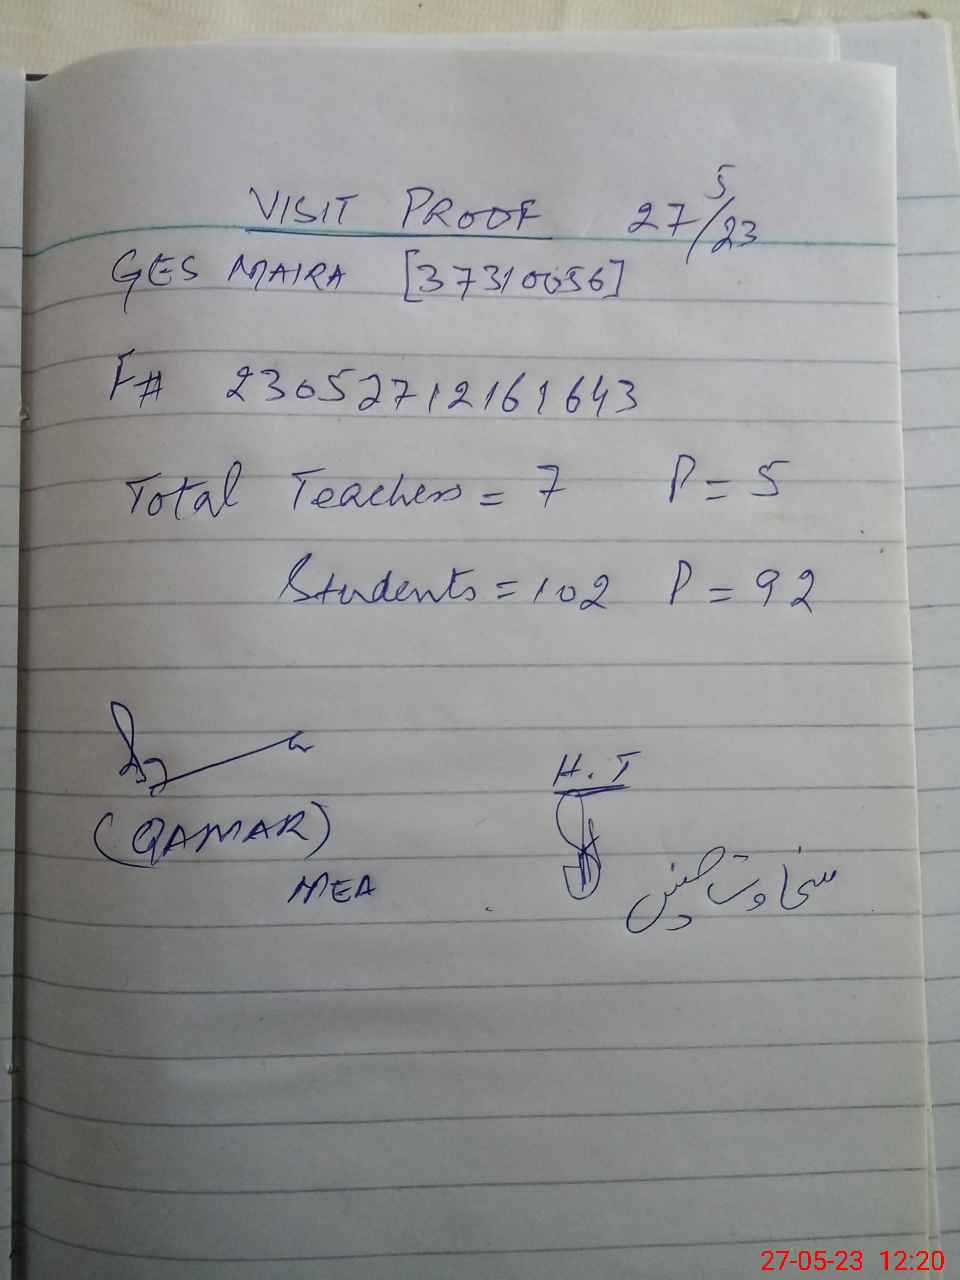 VISIT PROOF 27/5/23
GES MAIRA [37310056]
F# 23052712161643
Total Teachers = 7 P = 5
Students = 102 P = 92
(QAMAR)
MEA
H.T
سخاوت حسین
27-05-23 12:20